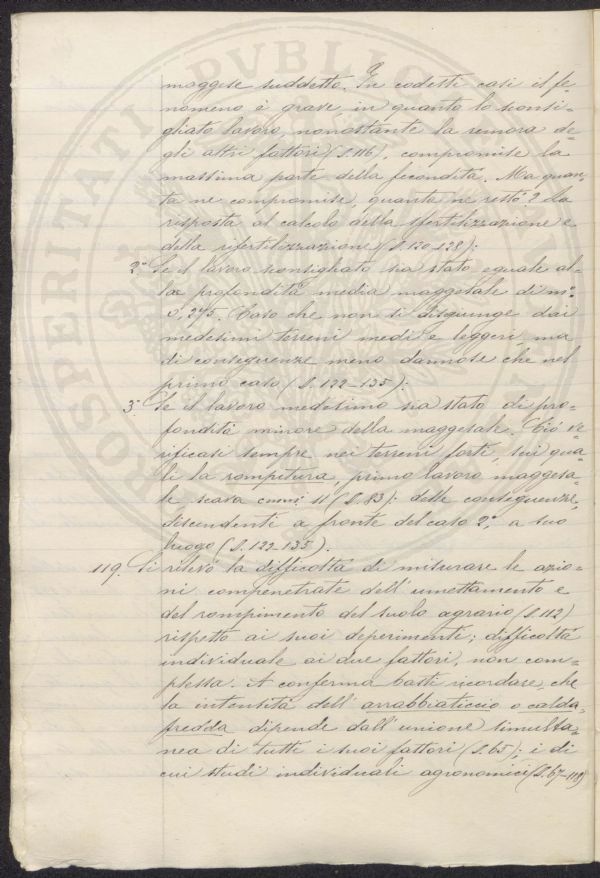 maggese suddetto. In codesti casi il fe-
nomeno è grave in quanto lo sconsi-
gliato lavoro, nonostante la remora de-
gli altri fattori (S. 116), compromise la
massima parte della fecondità. Ma quan-
ta ne compromise, quanta ne restò? La
risposta al calcolo della sfertilizzazione e
della rifertilizzazione (S. 120, 128):
2° Se il lavoro sconsigliato sia stato eguale al-
la profondità media maggesale di m.
0,275. Caso che non si disgiunge dai
medesimi terreni medi e leggeri, ma
di conseguenze meno dannose che nel
primo caso (S. 122-135):
3° Se il lavoro medesimo sia stato di pro-
fondità minore della maggesale. Ciò ve-
rificasi sempre nei terreni forti, sui qua-
li la rompitura, primo lavoro maggesa-
le scava cmm: 11 (S. 83): delle conseguenze,
discendenti a fronte del caso 2°, a suo
luogo (S. 122-135).
119. Si rilevò la difficoltà di misurare le azio-
ni compenetrate dell'umettamento e
del rompimento del suolo agrario (S. 112)
rispetto ai suoi deperimenti; difficoltà
individuale ai due fattori, non com-
plessa. A conferma basti ricordare, che
la intensità dell'arrabbiaticcio o calda-
fredda dipende dall'unione simulta-
nea di tutti i suoi fattori (S. 65); i di
cui studi individuali agronomici (S. 67-118)
PVBLICAE
PROSPERITATI